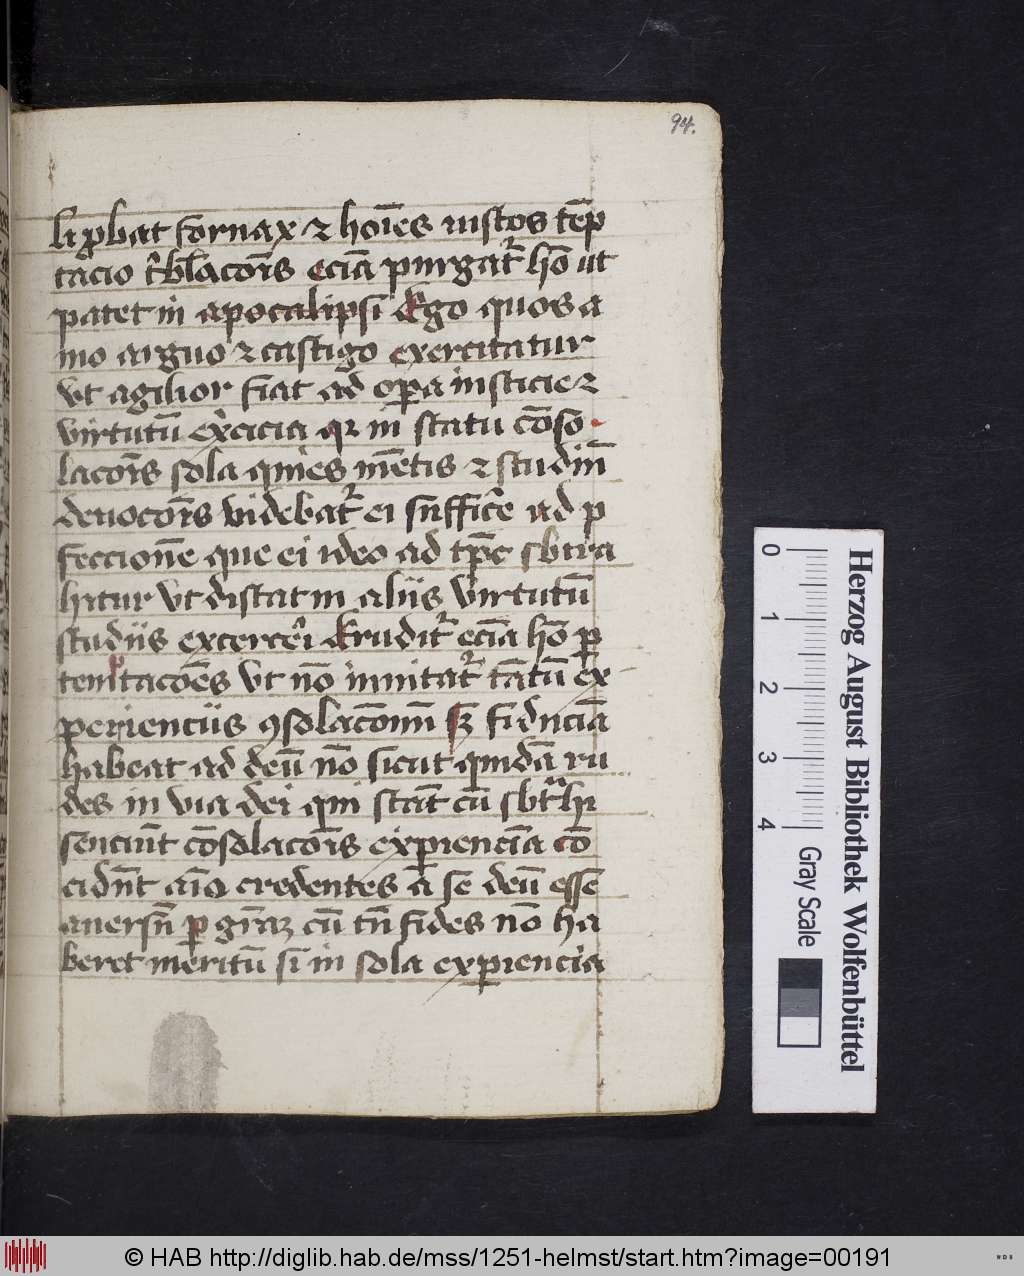 94.
li ꝓbat fornax ⁊ hoīes iustos tēp
tacio t̓bl̄acōis eciā purgat᷑ hō ut
patet in apocalipsi Ego quos a
mo arguo ⁊ castigo exercitatur
vt agilior fiat ad oꝑa iusticie ⁊
virtutū ex̓cicia qꝛ in statu cōso
lacōis sola quies mētis ⁊ studiū
deuocōis videbat᷑ ei suffic̓e ad p
feccionē que ei ideo ad tp̄e sbtra
hitur vt discat in aliis virtutū
studiis excercēi Erudit᷑ eciā hō ꝑ
temtacōēs vt nō innitat᷑ tātū ex
perienciis ꝯsolacōnū sꝫ fiduciā
habeat ad deū nō sicut quidā ru
des in via dei qui stāt cū sbt̓hi
senciūt cōsolacōis exꝑienciā cō
cidūt aīo credentes a se deū esse
auersū ꝑ gr̄aꝫ cū tn̄ fides nō ha
beret meritū si in sola exꝑiencia
Herzog August Bibliothek Wolfenbüttel
0 1 2 3 4
Gray Scale
© HAB http://diglib.hab.de/mss/1251-helmst/start.htm?image=00191